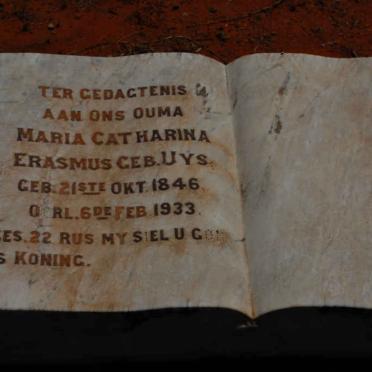 TER GEDAGTENIS
AAN ONS OUMA
MARIA CATHARINA
ERASMUS GEB. UYS.
GEB. 21STE OKT. 1846.
OERL. 6DE FEB. 1933.
GES. 22 RUS MY SIEL U GOD
IS KONING.